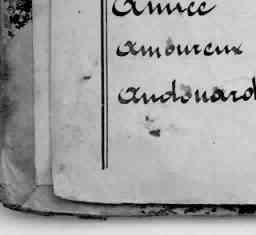 Amice
Amoureux
Andouard